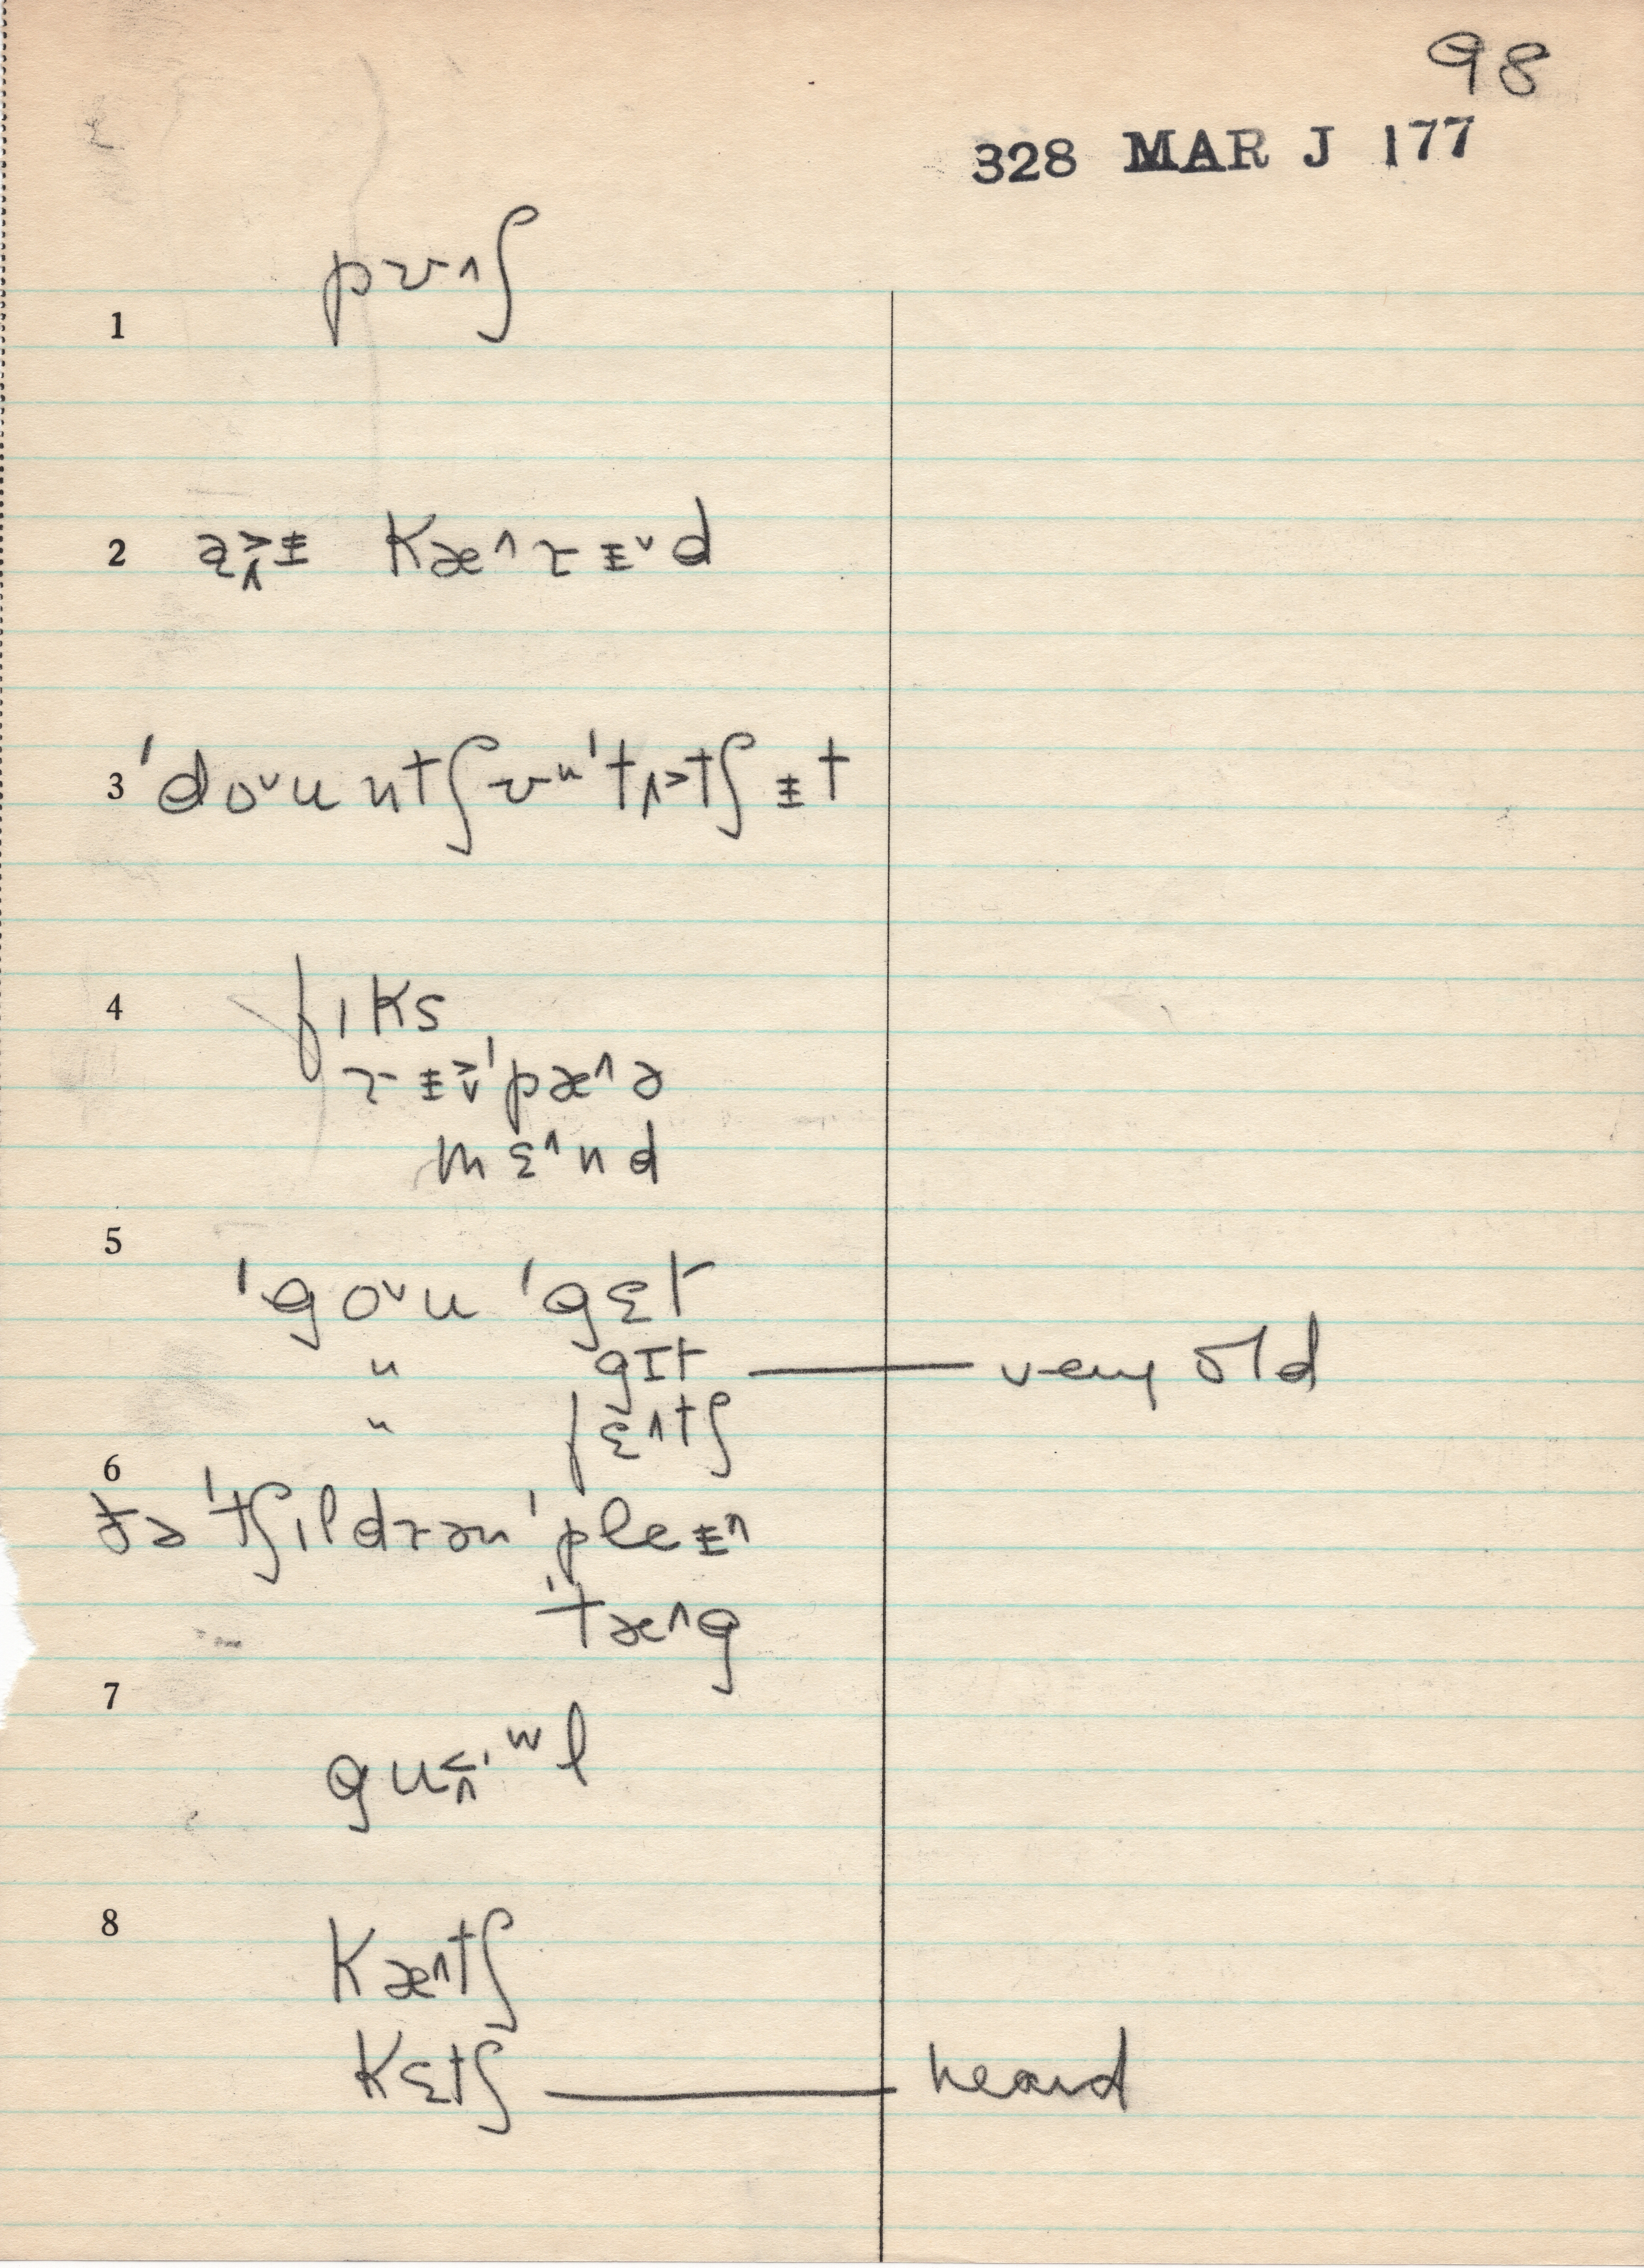 98
328 MAR J 177
1 pʊ^ʃ
2 a>^ɨ kæ^rɨˇd
3 'doˇu ntʃʊ^'tʌ>tʃ ɨt
4 fɪks
rɨ>ˇ'pæ^ə
mɛ^nd
5 'goˇu 'gɛt
" gɪt — very old
" fɛ^tʃ
6 ðə 'tʃɪldrən 'pleɨ^
'tæ^g
7 gu<^'ʷl
8 kæ^tʃ
kɛtʃ — heard